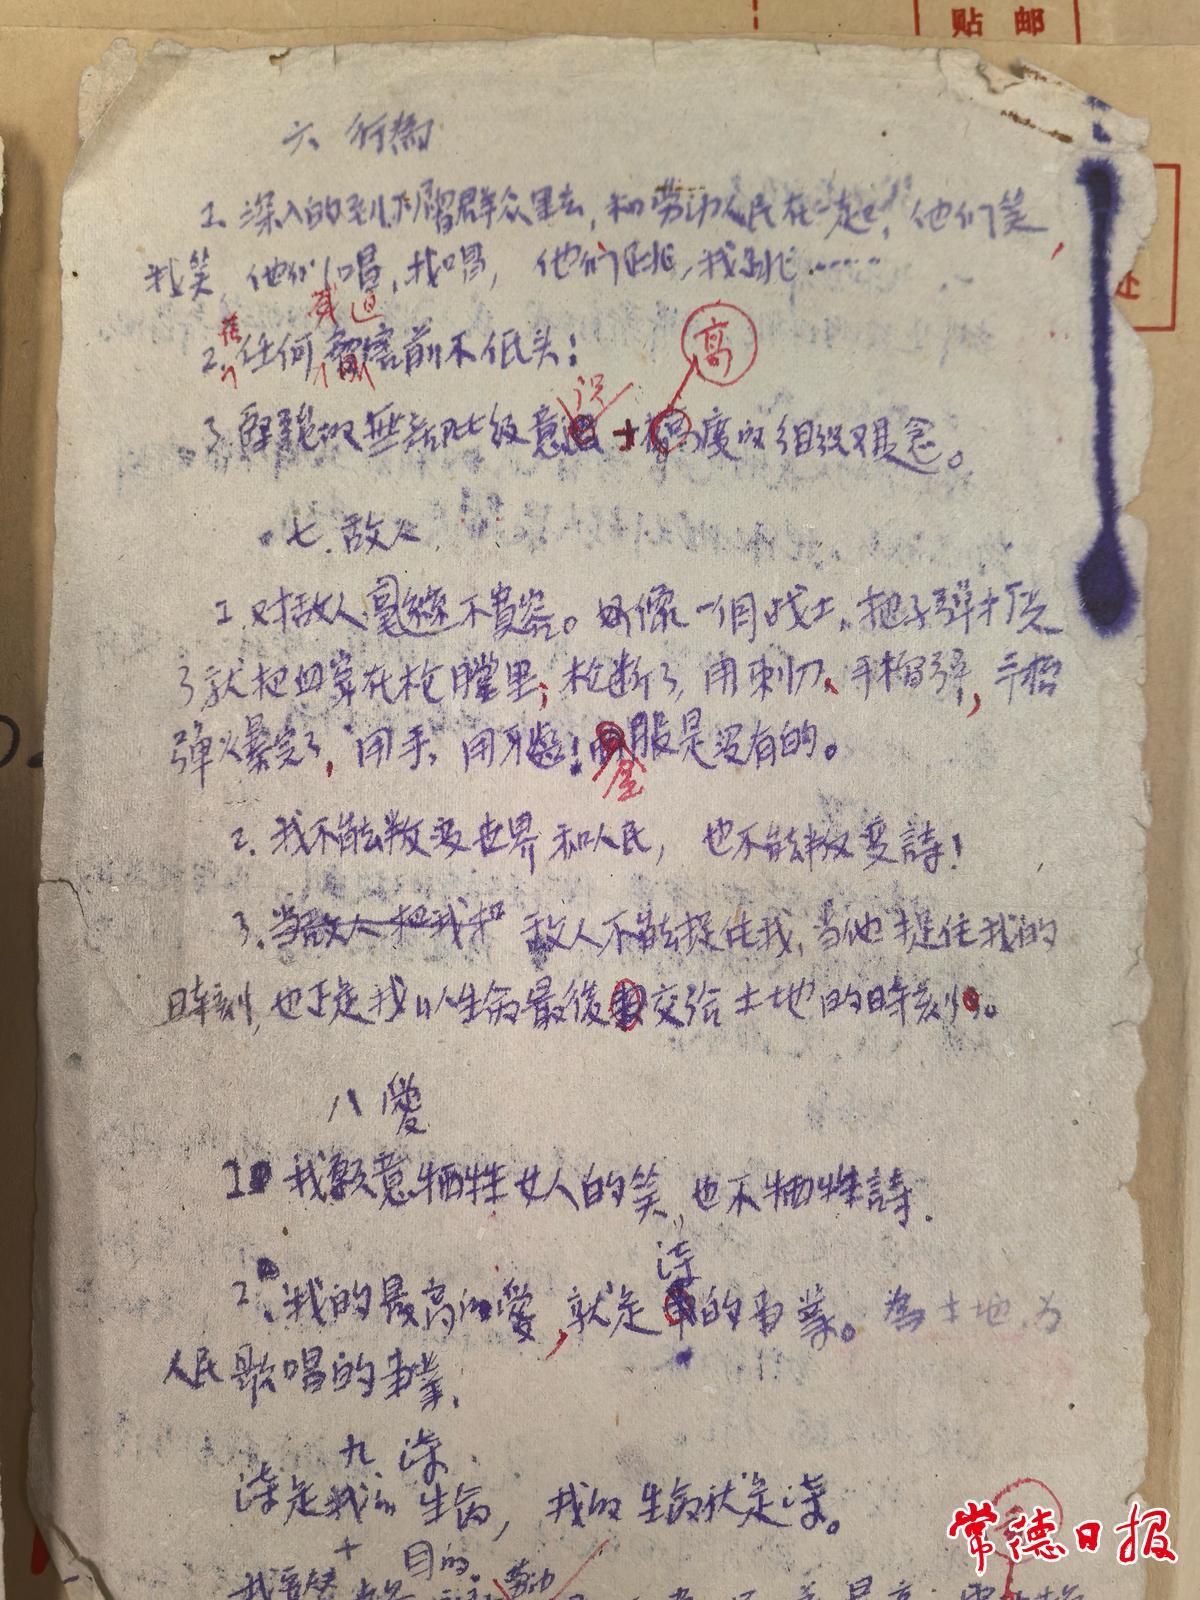 贴 邮
六、行为
1. 深入的到下层群众里去,和劳动人民在一起,他们笑,
我笑,他们唱,我唱,他们跳,我跳……
2. 任何 害前不低头!
3. 坚强的无产阶级意识+高度的组织观念。
高
七、敌人
1. 对敌人毫不宽容。好像一个战士,把子弹打光
了就把血肉 在枪膛里,枪断了,用刺刀、手榴弹,手榴
弹爆完了,用手、用牙齿!屈服是没有的。
2. 我不能叛变世界和人民,也不能叛变詩!
3. 当敌人把我和 敌人不能捉住我,当他捉住我的
时刻,也正是我以生命最後交给土地的时刻。
八 愛
1. 我願意牺牲女人的笑,也不牺牲詩.
2. 我的最高的愛,就是诗的事業。為土地,为
人民歌唱的事業.
九 诗
诗是我的生命,我的生命就是诗。
十 目的
劳动
常德日报